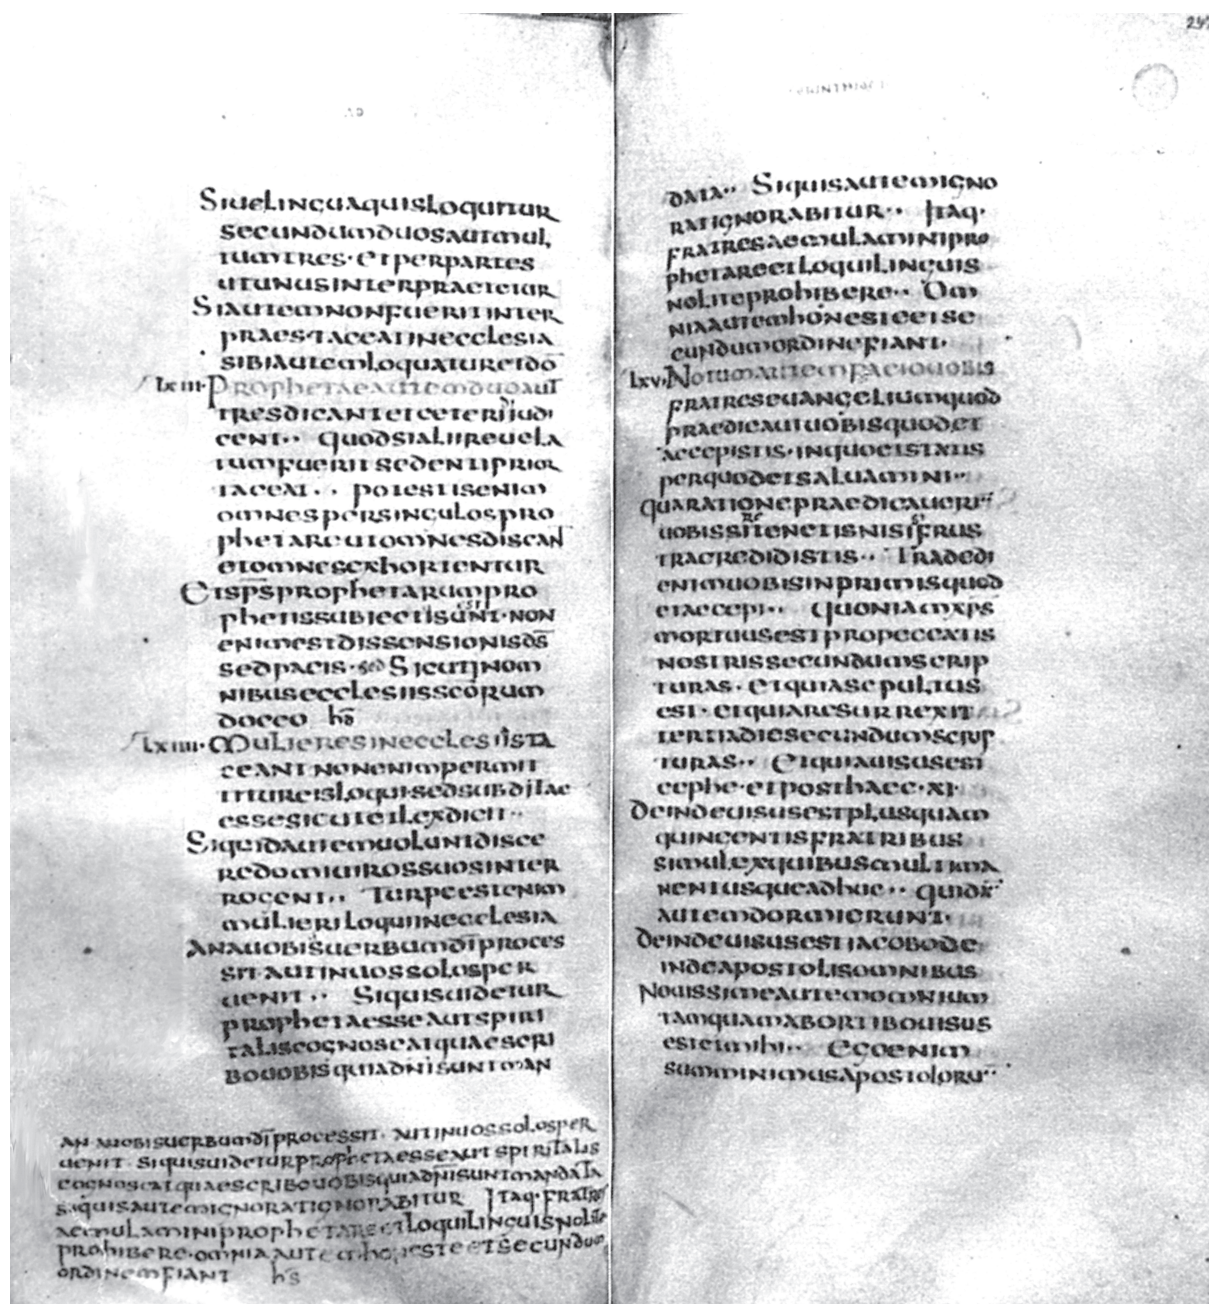 Siuelinguaquisloquitur
secundumduosautmul,
tumtres·etperpartes
utunusinterpraetetur
Siautemnonfueritinter
praes·taceatinecclesia
sibiautemloquaturetdō
lxiii·Prophetaeautemduoaut
tresdicantetceteriiudi
cent·· quodsialiireuela
tumfueritsedentiprior
taceat·· potestisenim
omnespersingulospro
phetareutomnesdiscant
etomnesexhortentur
Etsp̄sprophetarumpro
phetissubiectisunt·non
enimestdissensionisd̄s
sedpacis·sed Sicutinom
nibusecclesiisscōrum
doceo hd̄
lxiiii·Mulieresinecclesiista
ceantnonenimpermit
titureisloqui·sedsubditae
essesicutetlexdicit··
Siquidautemuoluntdisce
redomiuirossuosinter
rogent·· Turpeestenim
mulieriloquiinecclesia
Anauobisuerbumdīproces
sit·autinuossolosper
uenit·· Siquisuidetur
prophetaesseautspiri
taliscognoscatquaescri
bouobisquiadn̄isuntman
an auobisuerbumdīprocessit· autinuossolosper
uenit· siquisuideturprophetaesseautspiritalis
cognoscatquaescribouobisquiadn̄isuntmandata
siquisautemignoratignorabitur Itaq·fratres
aemulaminiprophetareetloquilinguisnolite
prohibere·omniaautemhonesteetsecundum
ordinemfiant hs̄
data·· Siquisautemigno
ratignorabitur·· Itaq·
fratresaemulaminipro
phetareetloquilinguis
noliteprohibere·· Om
niaautemhonesteetse
cundumordinefiant·
lxv·Notumautemfaciouobis
fratreseuangeliumquod
praedicauiuobisquodet
accepistis·inquoetstatis
perquodetsaluamini··
quarationepraedicauerī
uobissitenetisnisifrus
tracredidistis·· Tradedi
enimuobisinprimisquod
etaccepi·· quoniamxp̄s
mortuusestpropeccatis
nostrissecundumscrip
turas·etquiasepultus
est·etquiaresurrexit
tertiadiesecundumscrip
turas·· Etquiauisusest
cephe·etposthaec·xi·
Deindeuisusestplusquam
quincentisfratribus
simulexquibusmultima
nentusqueadhuc·· quidā
autemdormierunt·
deindeuisusestiacobode
indeapostolisomnibus
Nouissimeautemomnium
tamquamabortibouisus
estetmihi·· Egoenim
summinimusapostolorū··